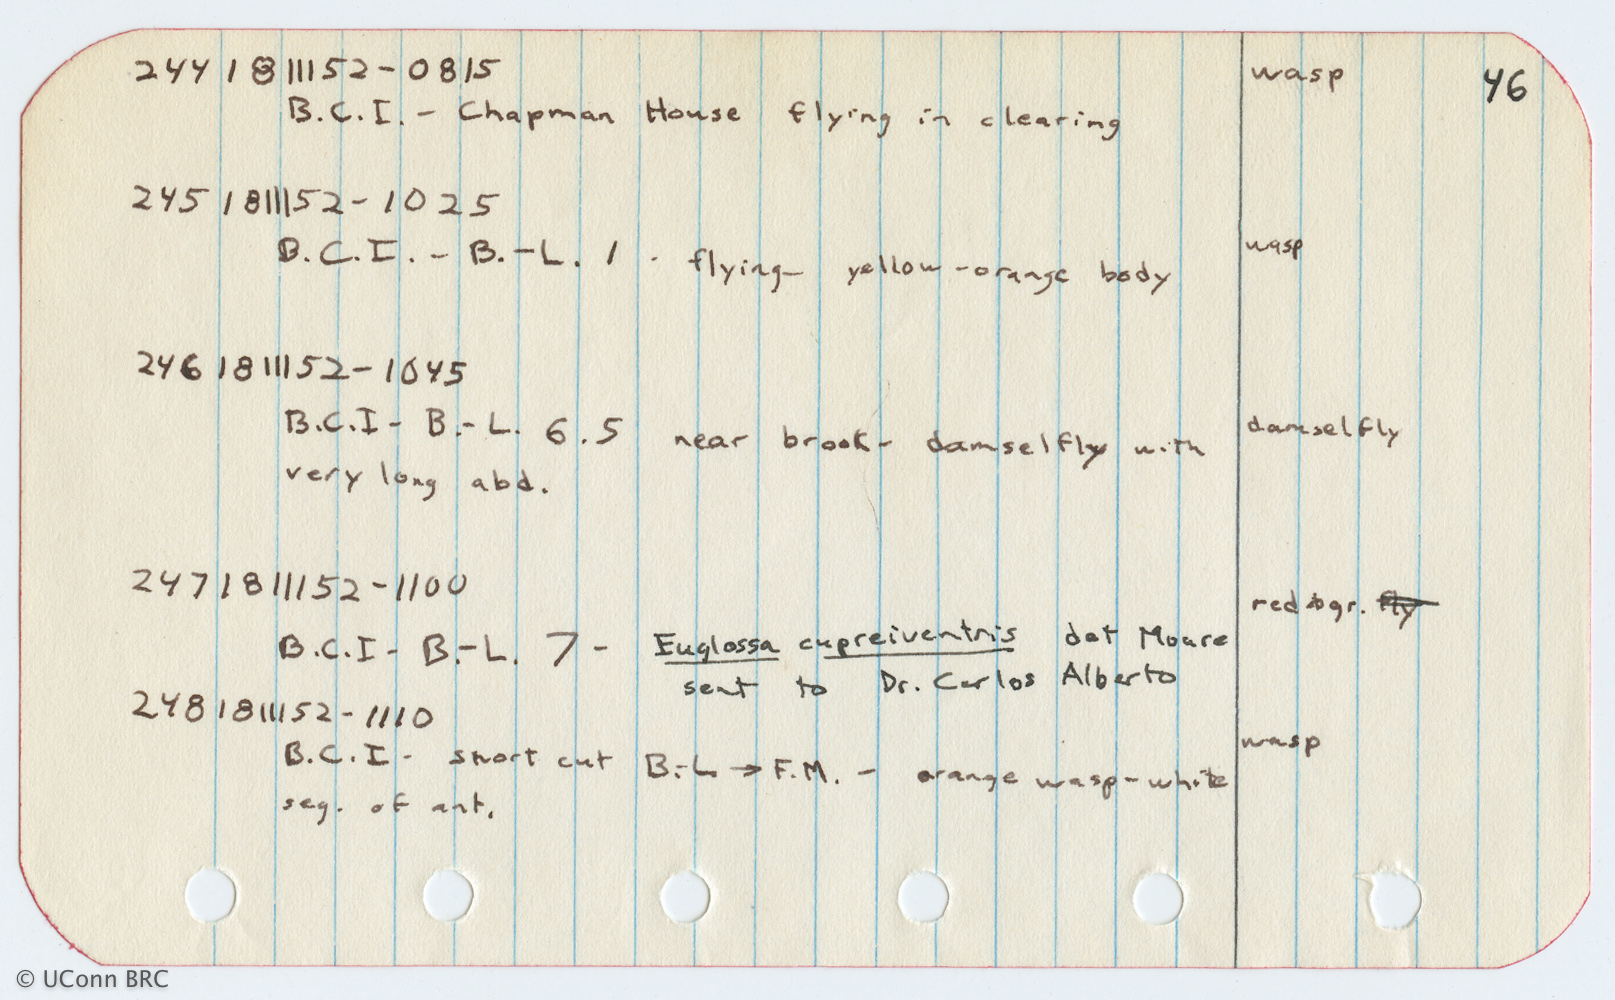 46
244 18111152-0815 wasp
B.C.I. - Chapman House flying in clearing
245 18111152-1025
B.C.I. - B.-L. 1 - flying- yellow-orange body wasp
246 18111152-1045
B.C.I- B.-L. 6.5 near brook- damselfly with damselfly
very long abd.
247 18111152-1100
B.C.I- B.-L. 7 - Euglossa cupreiventris det Moure red gr. fly
sent to Dr. Carlos Alberto
248 18111152-1110
B.C.I- short cut B.-L → F.M. - orange wasp-white wasp
seg. of ant.
© UConn BRC